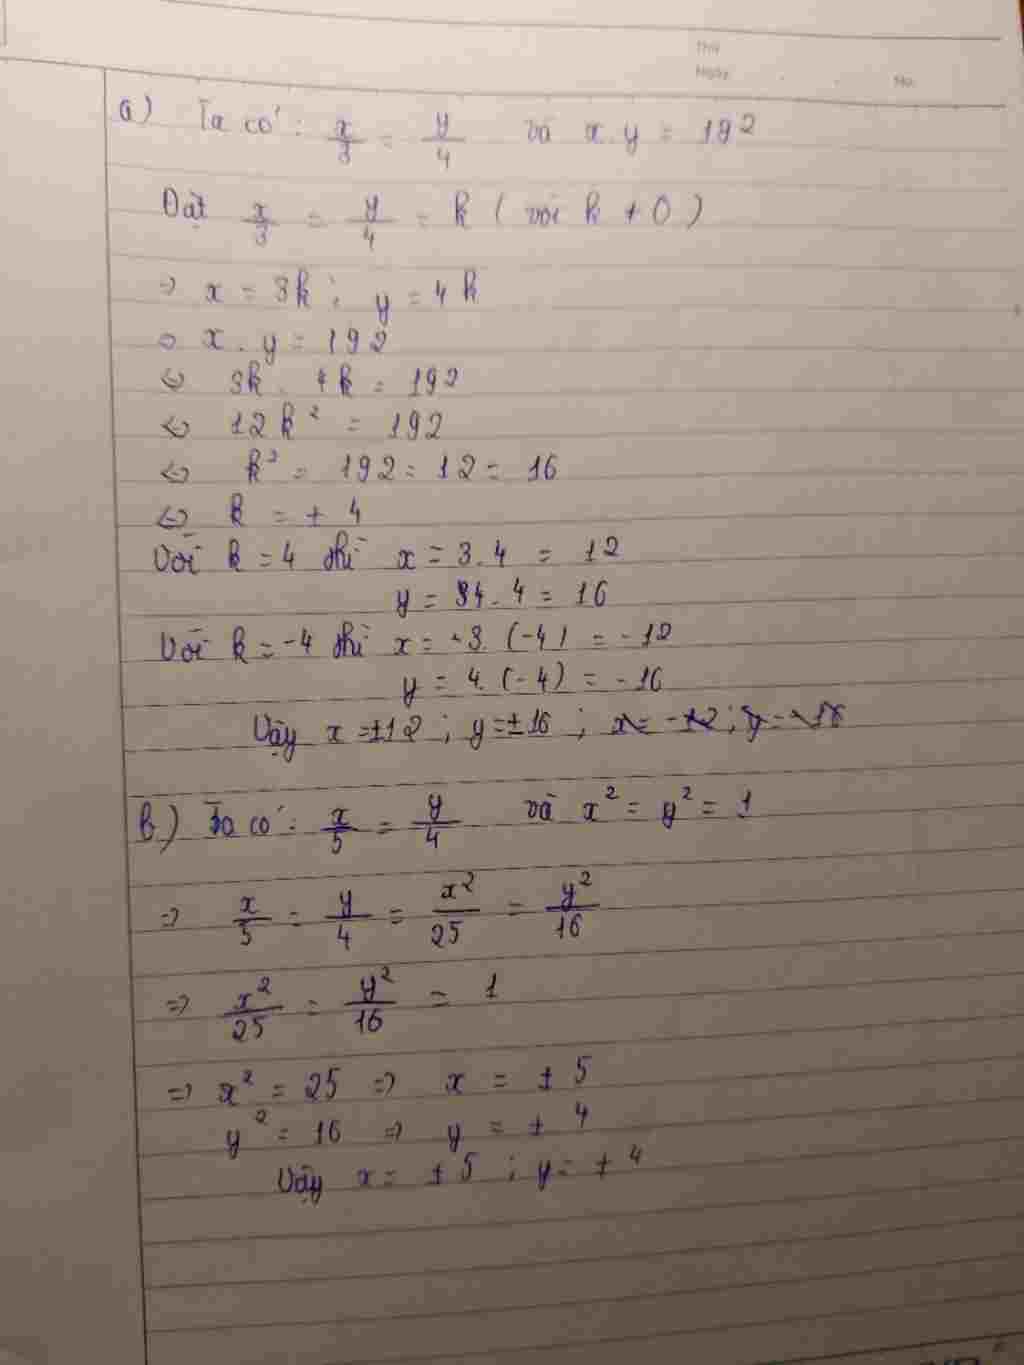 Thứ
Ngày No.
a) Ta có: x/3 = y/4 và x.y = 192
Đặt x/3 = y/4 = k (với k ≠ 0)
=> x = 3k; y = 4k
=> x . y = 192
<=> 3k. 4k = 192
<=> 12k² = 192
<=> k² = 192 : 12 = 16
<=> k = ± 4
Với k = 4 thì x = 3.4 = 12
y = 4 . 4 = 16
Với k = -4 thì x = 3. (-4) = -12
y = 4. (-4) = -16
Vậy x = ±12 ; y = ±16 ; x = -12 ; y = -16
b) Ta có: x/5 = y/4 và x² = y² = 1
=> x/5 = y/4 = x²/25 = y²/16
=> x²/25 = y²/16 = 1
=> x² = 25 => x = ± 5
y² = 16 => y = ± 4
Vậy x = ± 5 ; y = ± 4